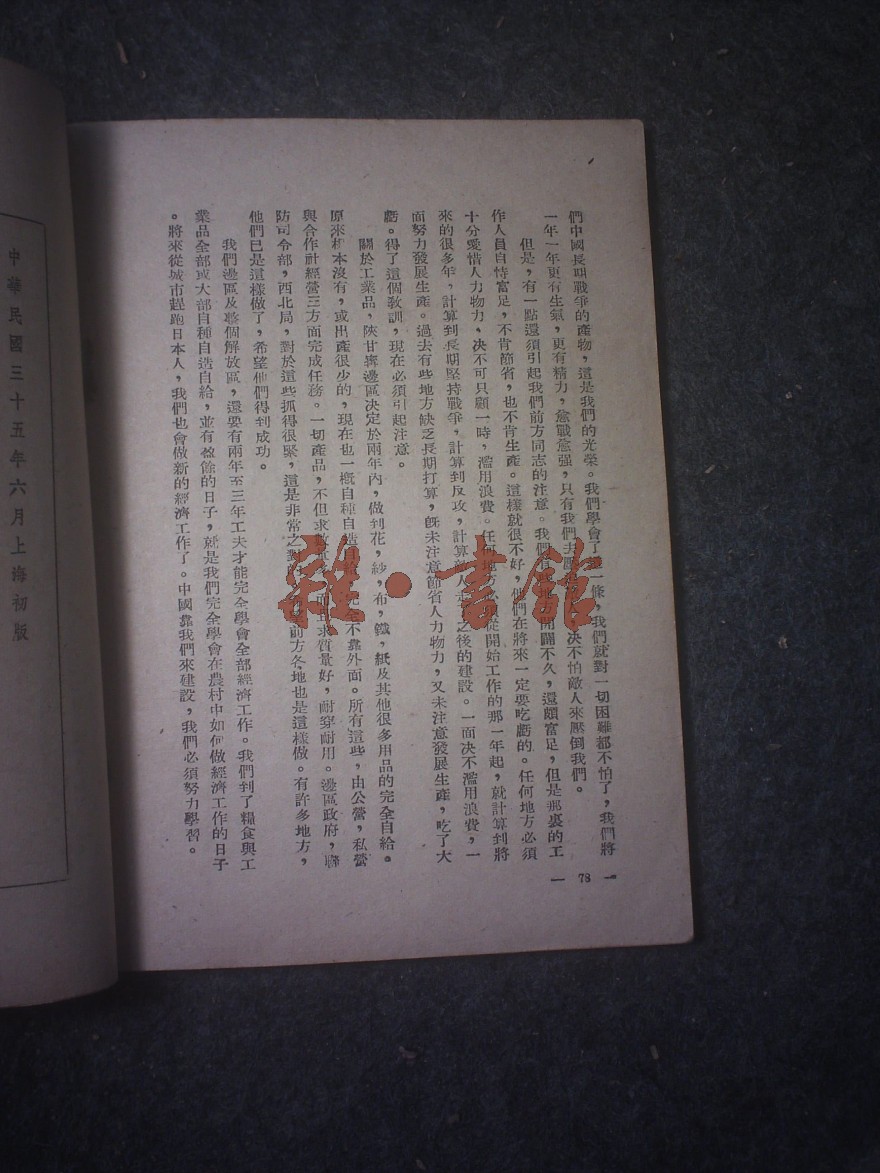 們中國長期戰爭的產物,這是我們的光榮。我們學會了一條,我們就對一切困難都不怕了,我們將
一年一年更有生氣,更有精力,愈戰愈強,只有我們去壓決不怕敵人來壓倒我們。
但是,有一點還須引起我們前方同志的注意。我們有地開闢不久,還頗富足,但是那裏的工
作人員自恃富足,不肯節省,也不肯生產。這樣就很不好,他們在將來一定要吃虧的。任何地方必須
十分愛惜人力物力,决不可只顧一時,濫用浪費。任何地方必從開始工作的那一年起,就計算到將
來的很多年,計算到長期堅持戰爭,計算到反攻,計算人之後的建設。一面决不濫用浪費,一
面努力發展生產。過去有些地方缺乏長期打算,既未注意節省人力物力,又未注意發展生產,吃了大
虧。得了這個教訓,現在必須引起注意。
關於工業品,陜甘寧邊區决定於兩年內,做到花,紗,布,鐵,紙及其他很多用品的完全自給。
原來根本沒有,或出產很少的,現在也一概自種自造不靠外面。所有這些,由公營,私營
與合作社經營三方面完成任務。一切產品,不但求數求質量好,耐穿耐用。邊區政府,聯
防司令部,西北局,對於這些抓得很緊,這是非常之對前方各地也是這樣做。有許多地方,
他們已是這樣做了,希望他們得到成功。
我們邊區及整個解放區,還要有兩年至三年工夫才能完全學會全部經濟工作。我們到了糧食與工
業品全部或大部自種自造自給,並有盈餘的日子,就是我們完全學會在農村中如何做經濟工作的日子
。將來從城市趕跑日本人,我們也會做新的經濟工作了。中國靠我們來建設,我們必須努力學習。
— 78 —
中華民國三十五年六月上海初版
雜·書館